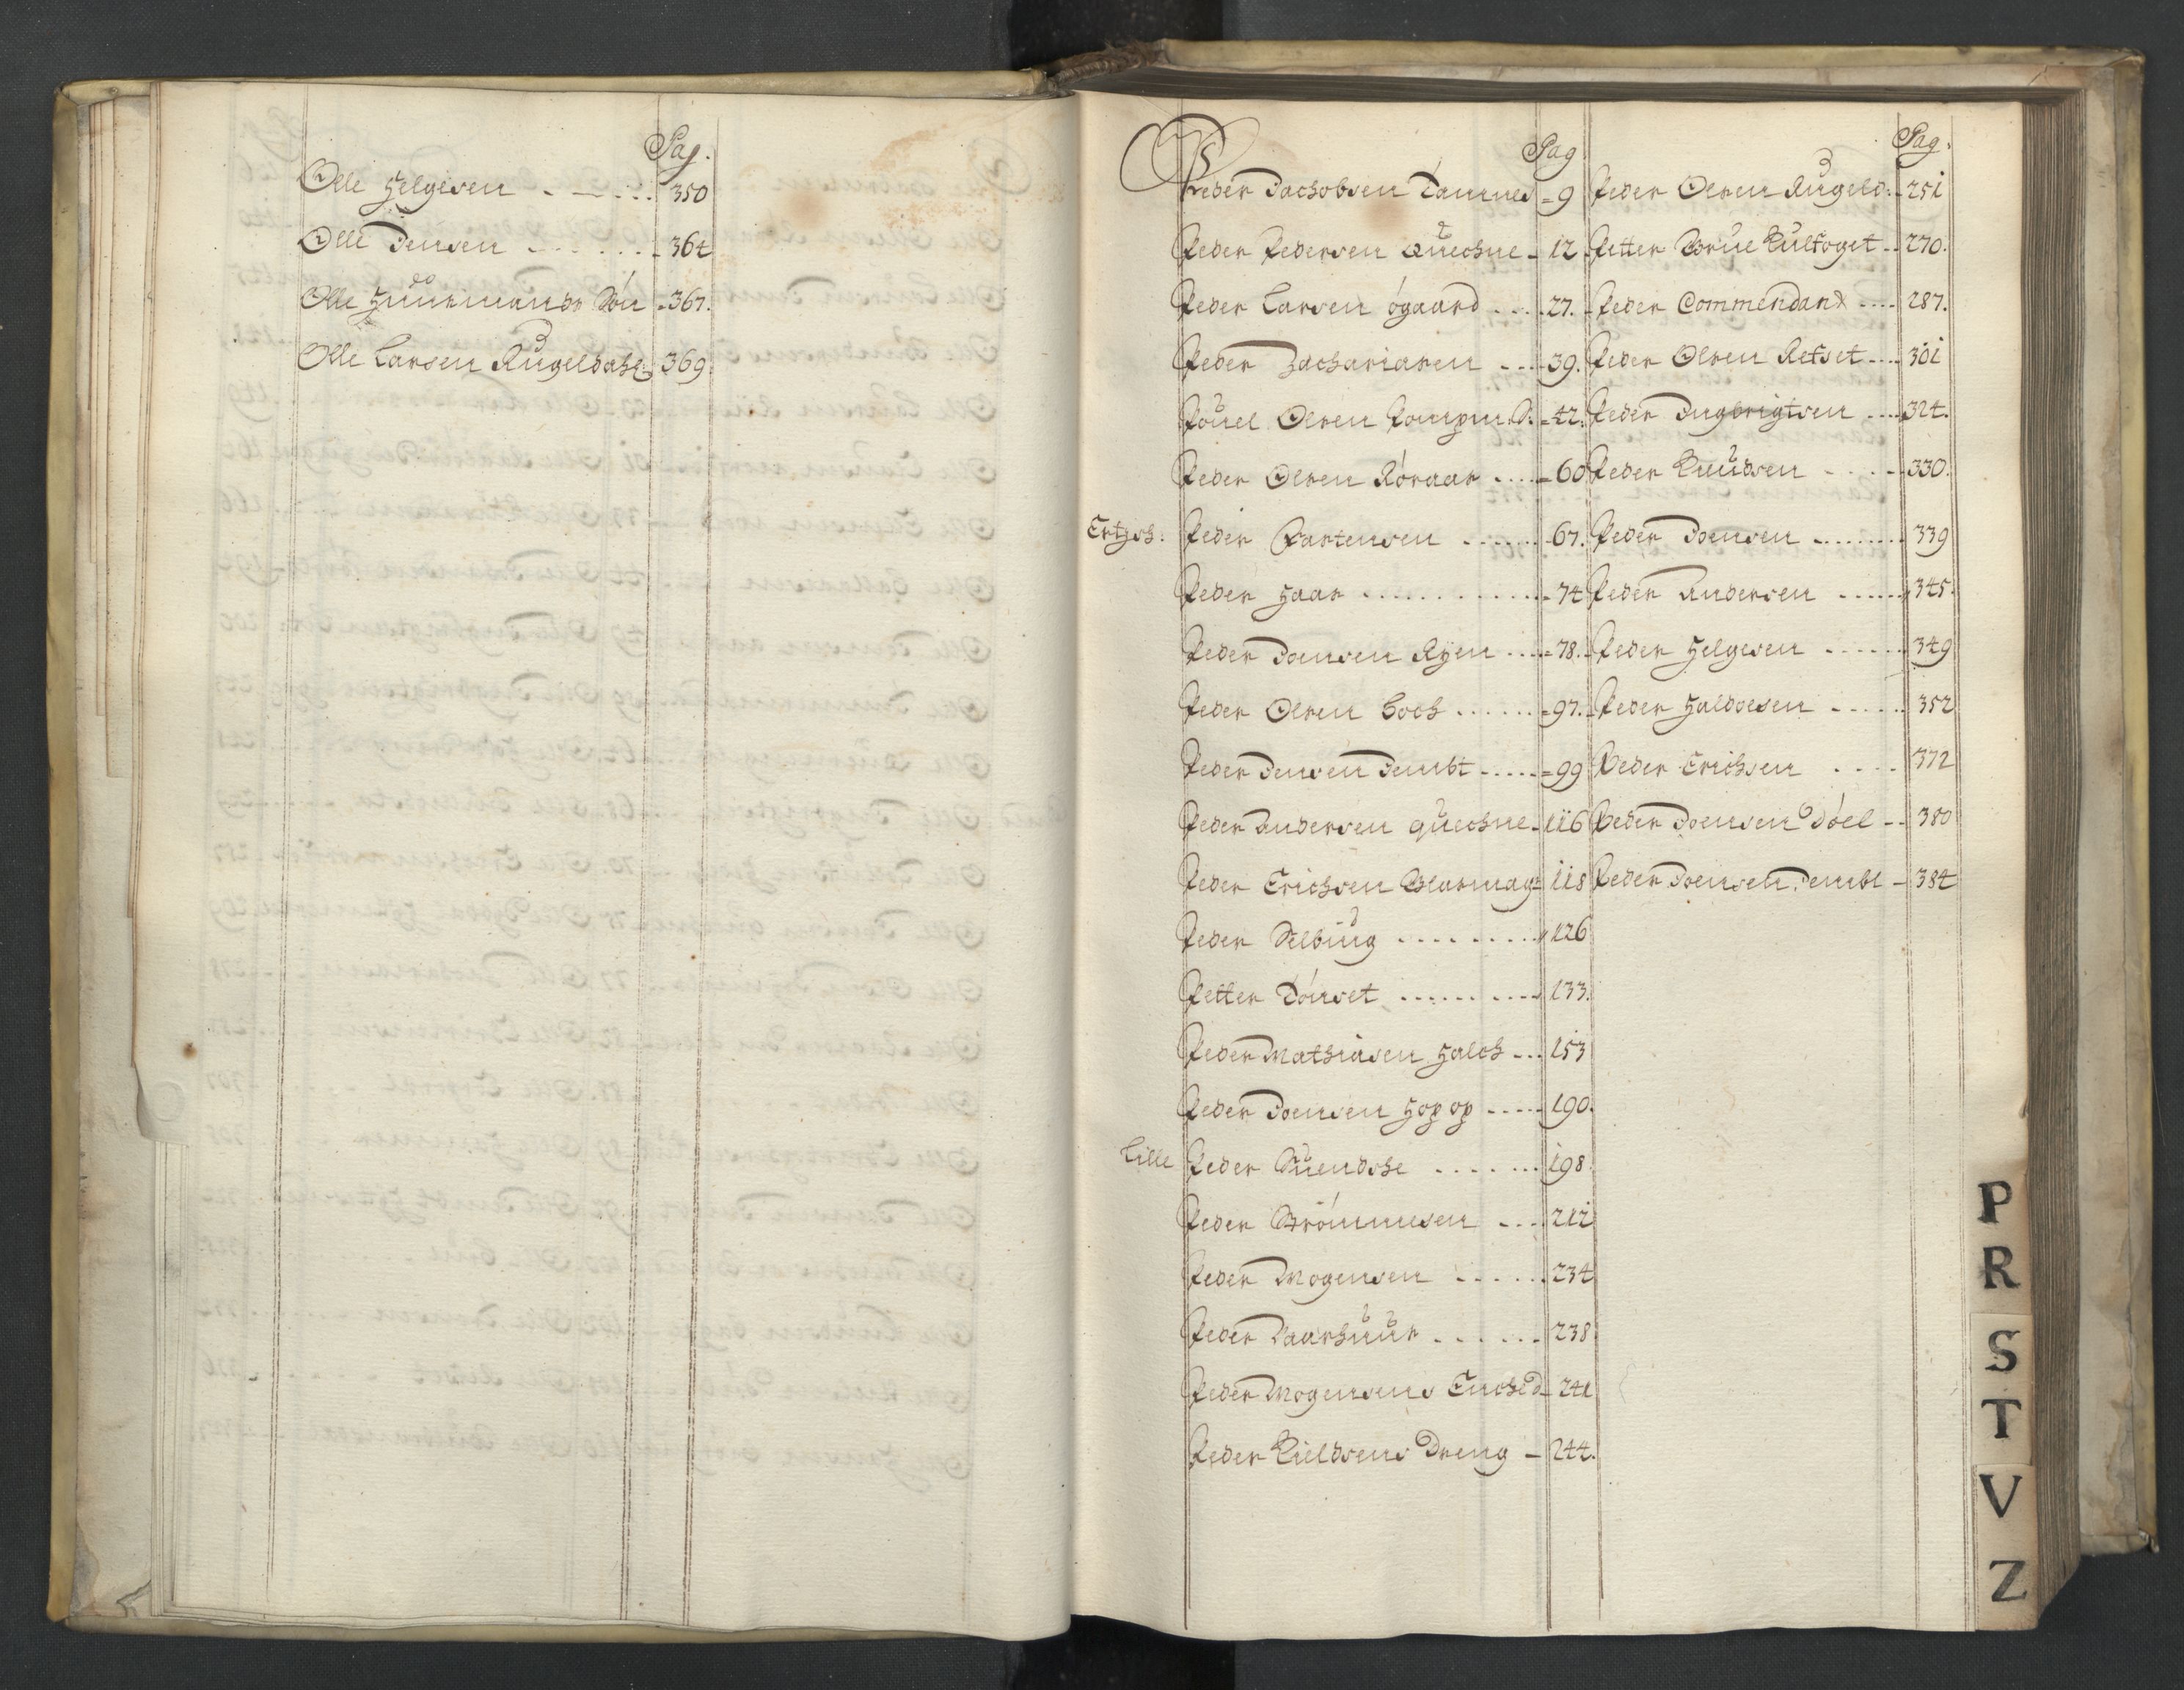 Pag.
Olle Helgesen - - - . . . 350
Olle Jensen - - - - - - - 364
Olle Huusmands Søn - 367.
Olle Larsen Rugeldahl 369
Pag
Peder Jachobsen Tamnes = 9
Peder Pedersen Quechne - 12
Peder Larsen Øgaard - - - 27.
Peder Zachariasen - - - 39.
Pouel Olsen = 42.
Peder Olsen Røraar - - - = 60
Ertzsch: Peder Bartensen - - - - - 67.
Peder Haar - - - - - - - - = 74
Peder Joensen Ryen - - - = 78.
Peder Olsen Coch - - - - = 97.
Peder Jensen Jembt - - - - = 99
Peder Andersen Quechne - 116
Peder Erichsen 118
Peder Selbiug - - - - - - - 126
Petter Tønset - - - - - - - 133.
Peder Mathiasen Halch - - - 153
Peder Joensen Hop op - - - - 190.
Lille Peder Suendske - - - - - 198.
Peder Brønnesen - - - 212
Peder Mogensen - - - - - 234
Peder Aarhuus - - - - - - 238
Peder Mogensens 241
Peder Kieldsens Dreng - 244.
Pag.
Peder Olsen Rugeld: - 251
Petter Brue Kulfoget - - 270.
Peder Commendant - - - - 287.
Peder Olsen Refset - - - 301
Peder Ingbrigtsen - - - 324.
Peder Knudsen - - - - - 330.
Peder Joensen - - - - - - - 339
Peder Andersen - - - - - - 345.
Peder Helgesen - - - - - - 349
Peder Haldoesen - - - - - 352
Peder Erichsen - - - - 372
Peder Joensen Døel - - 380
Peder Joensen Jembt - 384
P
R
S
T
V
Z